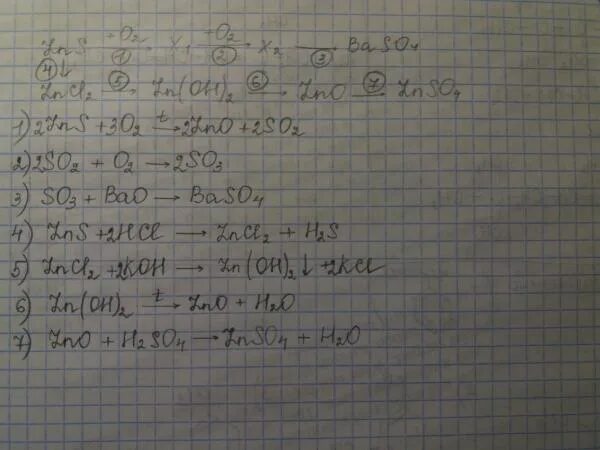 ZnS +O₂ → ① X₁ +O₂ → ② X₂ → ③ BaSO₄
④↓
ZnCl₂ ⑤→ Zn(OH)₂ ⑥→ ZnO ⑦→ ZnSO₄
1) 2ZnS + 3O₂ t→ 2ZnO + 2SO₂
2) 2SO₂ + O₂ → 2SO₃
3) SO₃ + BaO → BaSO₄
4) ZnS + 2HCl → ZnCl₂ + H₂S
5) ZnCl₂ + 2KOH → Zn(OH)₂↓ + 2KCl
6) Zn(OH)₂ t→ ZnO + H₂O
7) ZnO + H₂SO₄ → ZnSO₄ + H₂O